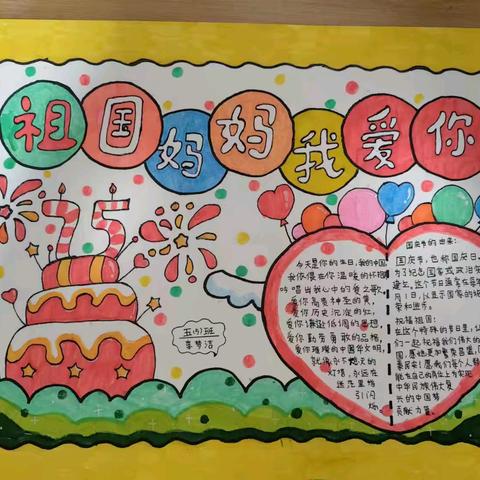 祖国妈妈我爱你
75
五(5)班
李梦洁
今天是你的生日,我的中国
我们偎在你温暖的怀抱
吟唱由我心中的爱之歌,
爱你高贵神圣的黄,
爱你历史沉淀的红,
爱你谦逊低调的思想,
爱你勤劳勇敢的品格,
爱你璀璨的中国年文明,
就像永不熄灭的
灯塔,永远在
远足里格
引闪
国庆节的由来:
国庆节,也称国庆日,
为了纪念国家或政治
建立,这个节日通常在每年
月1日,以显示国家的
荣和进步。
祝福祖国:
在这个特殊的节日里,让
们一起祝福我们伟大的
国,愿她更加繁荣昌盛,
泰民安!愿我们每个人
能在自己的岗位上为实现
中华民族伟大复
兴的中国梦
贡献力量。